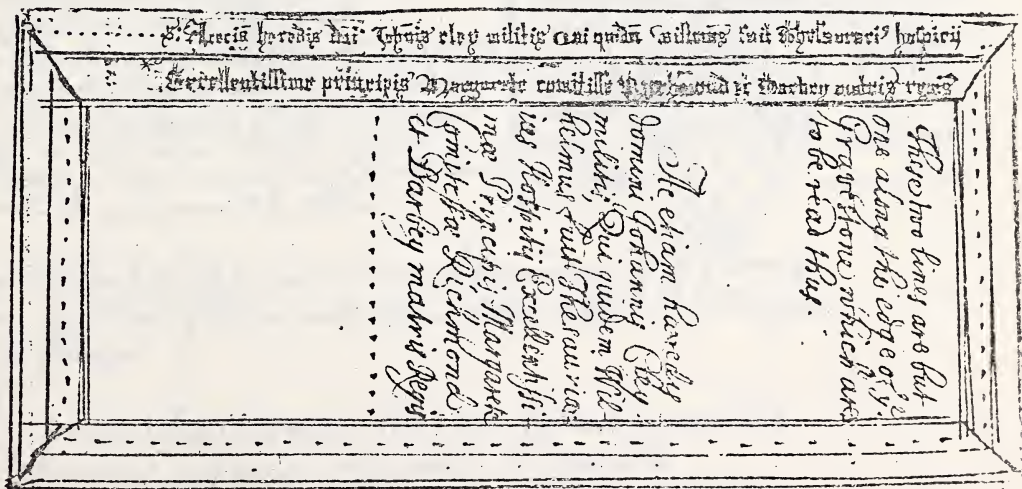 heredis dni Johnis cley militis Qui quidm Willms fuit Thesaurari' hospicij
Excellentissime principis Margarete comitisse Richemond et Darbey matris regis
These two lines are but
one along the edge of yᵉ
Gravestone which are
to be read thus.
etiam haeredis
domini Johannis Cley
militis, Qui quidem Wil-
helmus fuit Thesauriar
ius Hospitij Excellentissi
mae Principis Margarete
Comitissae Richmond
et Darbey matris Regis